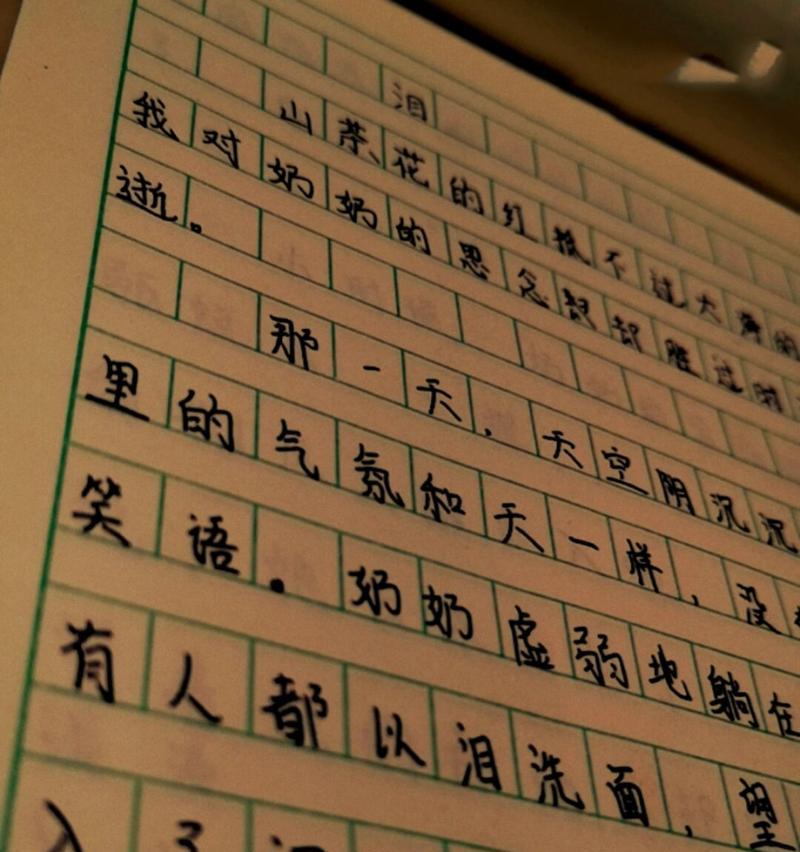 泪
山茶花的红抵不过大海的
我对奶奶的思念却胜过时
逝。
那一天，天空阴沉沉
里的气氛和天一样，没
笑语。奶奶虚弱地躺在
有人都以泪洗面，望
入了泪